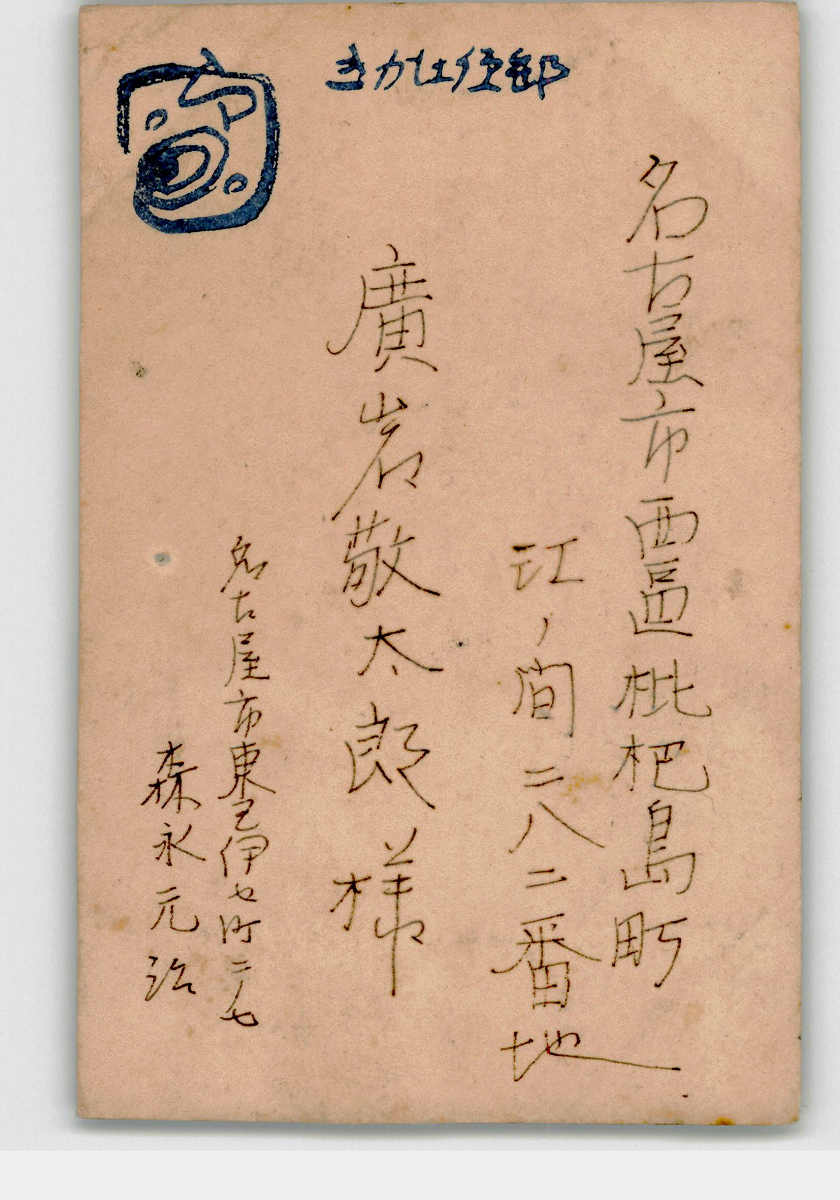 郵便はかき
名古屋市西區枇杷島町
江ノ間二八二番地
廣岩敬太郎様
名古屋市東区伊セ町二ノ七
森永元治